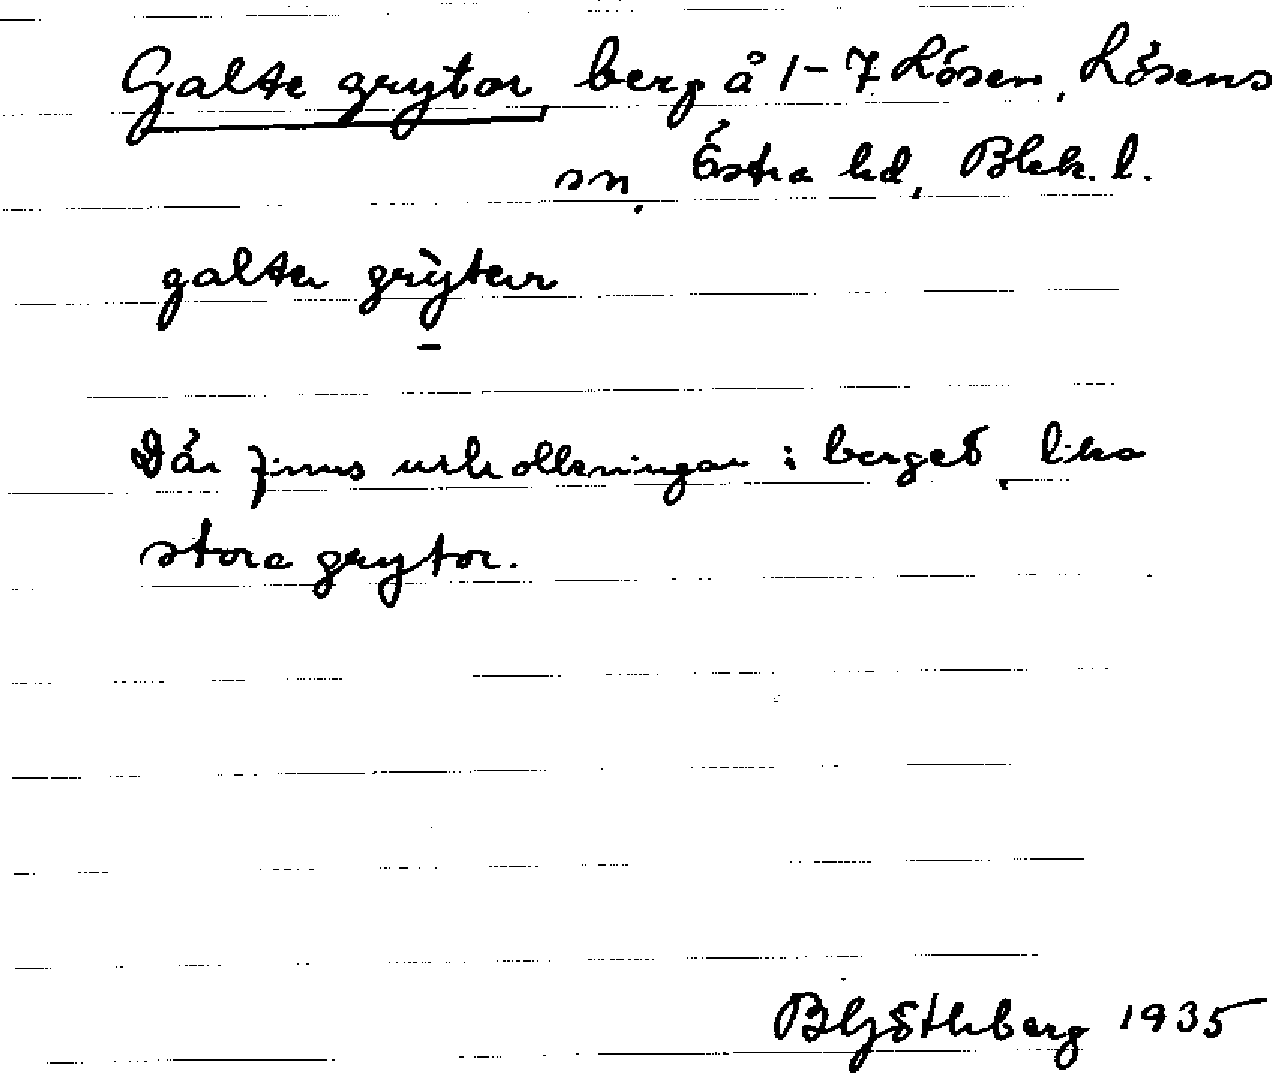 Galte grytor, berg å 1-7 Lösen, Lösens
sn, Östra hd, Blek. l.
galta grỳtar
Där finns urholkningar i berget, lika
stora grytor.
1935